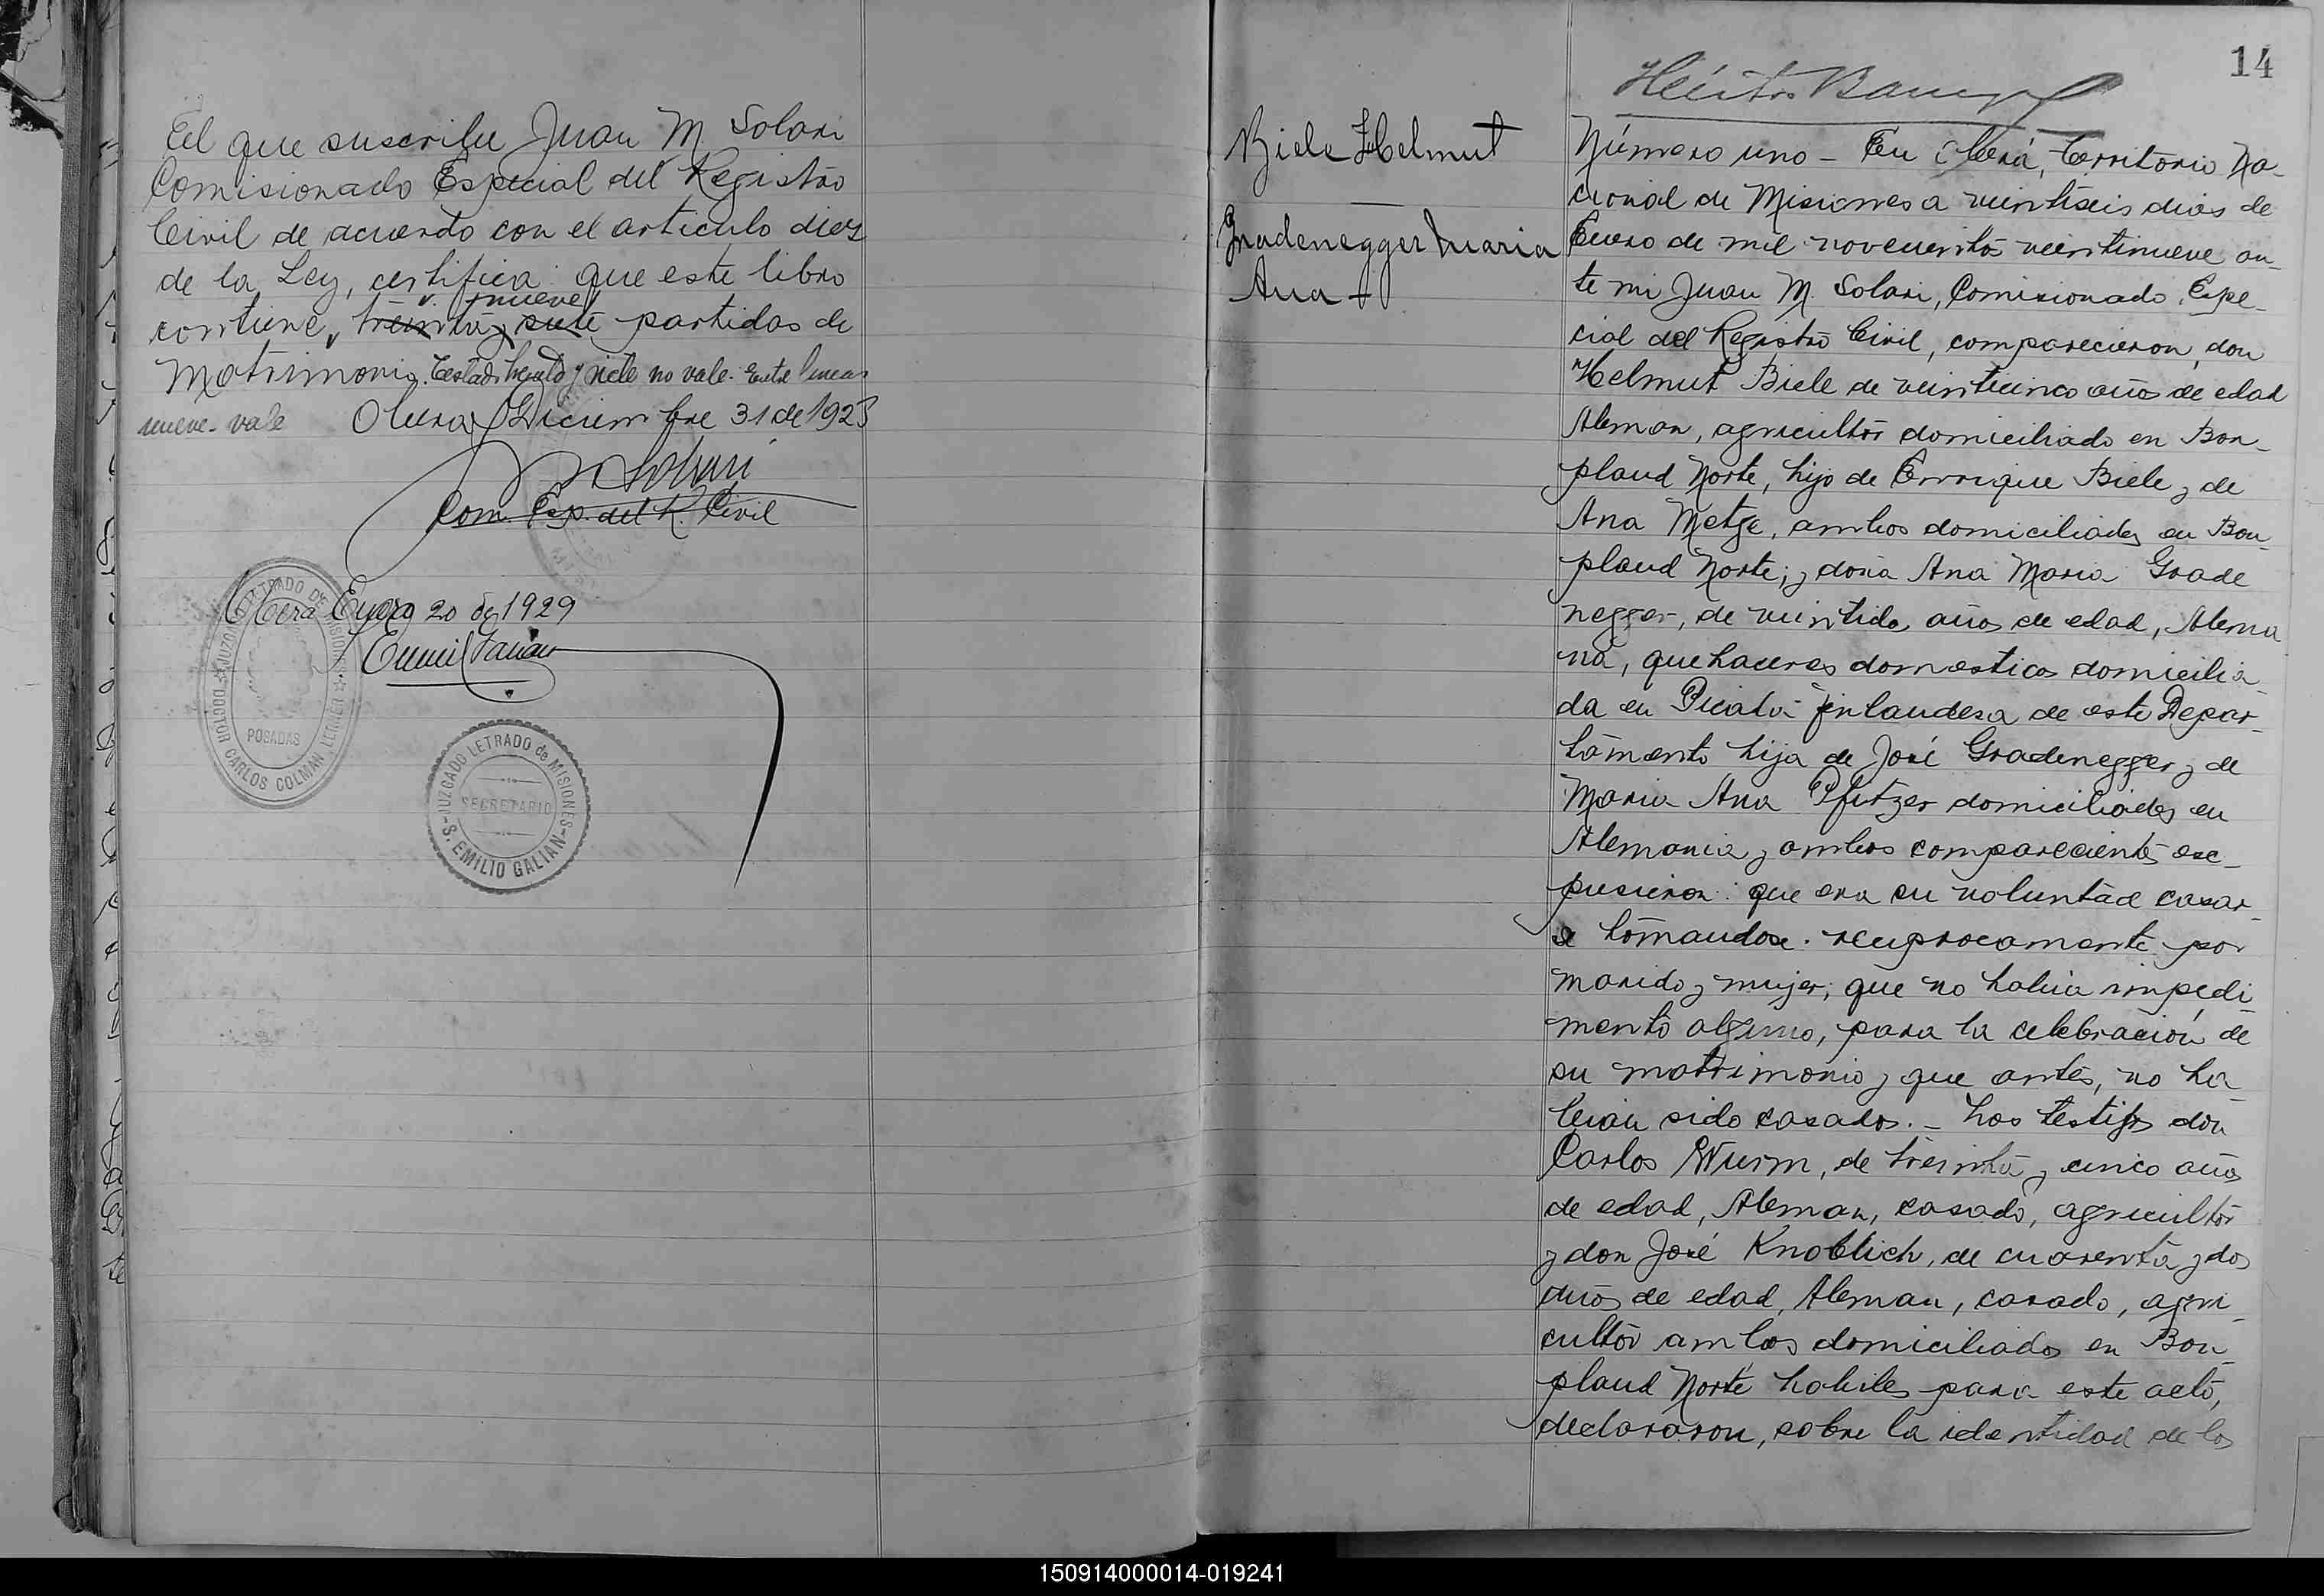 El que suscribe Juan M. Solari
Comisionado Especial del Registro
Civil de acuerdo con el articulo diez
de la Ley, certifica: que este libro
nueve
contiene, treinta y siete partidas de
Matrimonio. Testado treinta y siete no vale. Entre lineas
nueve - vale Obera Diciembre 31 de 192
Com. Esp. del R. Civil
Obera Enero 20 de 1929
JUZGADO LETRADO DE MISIONES
DOCTOR CARLOS COLMAN LERNER
POSADAS
JUZGADO LETRADO de MISIONES
SECRETARIO
S. EMILIO GALIAN
14
Biele Helmut
Gradenegger Maria
Ana
Número uno - En Oberá, Territorio Na-
cional de Misiones a veintiseis dias de
Enero de mil novecientos veintinueve an-
te mi Juan M. Solari, Comisionado Espe-
cial del Registro Civil, comparecieron, don
Helmut Biele de veinticinco años de edad
Aleman, agricultor domiciliado en Bon-
pland Norte, hijo de Enrrique Biele y de
Ana Metge, ambos domiciliados en Bon-
pland Norte; y doña Ana Maria Grade
negger, de veintidos años de edad, Alema
na, quehaceres domesticos domicilia-
da en Picada finlandesa de este Depar-
tamento hija de José Gradenegger y de
Maria Ana Pfitzer domiciliados en
Alemania y ambos comparecientes esc-
pusieron: que era su voluntad casar-
se tomandose reciprocamente por
marido y mujer; que no habia impedi
mento alguno, para la celebración de
su matrimonio y que antes, no ha-
bian sido casados. - Los testigos don
Carlos Wurm, de treinta y cinco años
de edad, Aleman, casado, agricultor
y don José Knoblich, de cuarenta y dos
años de edad, Aleman, casado, agri-
cultor ambos domiciliados en Bon-
pland Norte habiles para este acto,
declararon, sobre la identidad de los
150914000014-019241